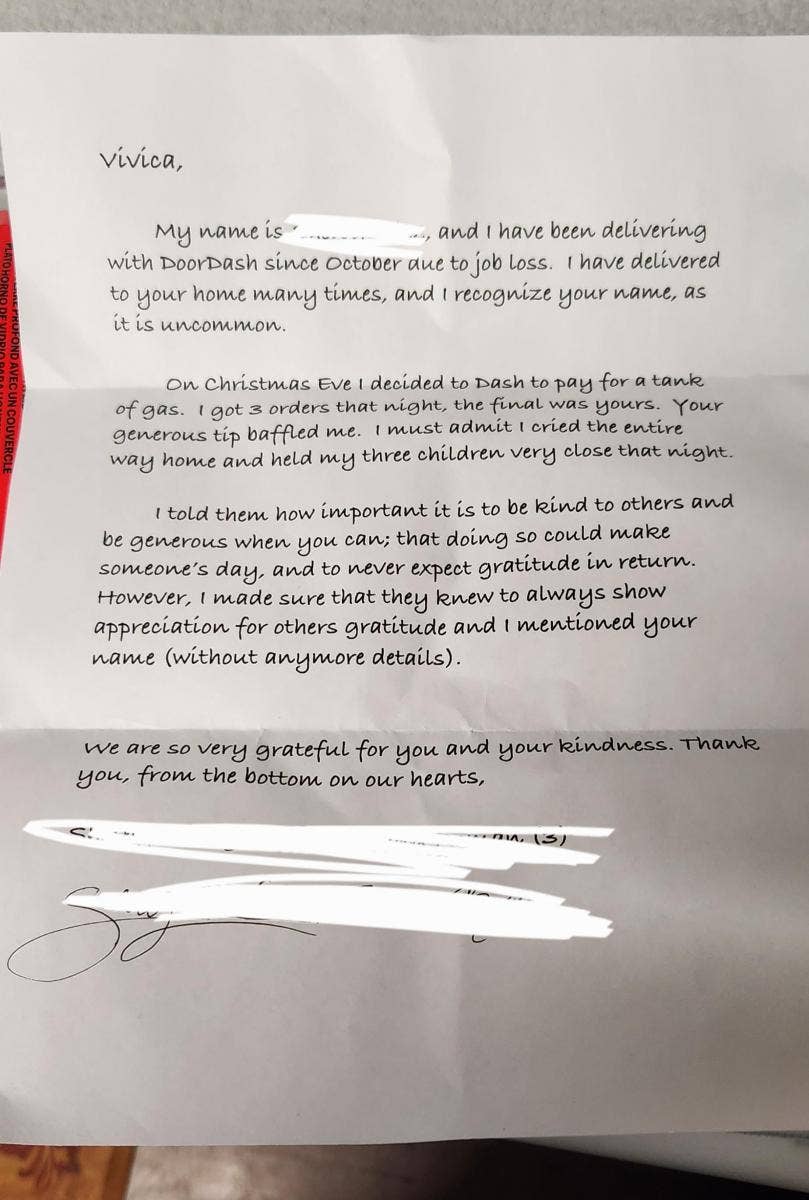 Vivica,
My name is , and I have been delivering
with DoorDash since October due to job loss. I have delivered
to your home many times, and I recognize your name, as
it is uncommon.
On Christmas Eve I decided to Dash to pay for a tank
of gas. I got 3 orders that night, the final was yours. Your
generous tip baffled me. I must admit I cried the entire
way home and held my three children very close that night.
I told them how important it is to be kind to others and
be generous when you can; that doing so could make
someone's day, and to never expect gratitude in return.
However, I made sure that they knew to always show
appreciation for others gratitude and I mentioned your
name (without anymore details).
We are so very grateful for you and your kindness. Thank
you, from the bottom on our hearts,
(3)
PROFOND AVEC UN COUVERCLE
PLATO HORNO DE VIDRIO